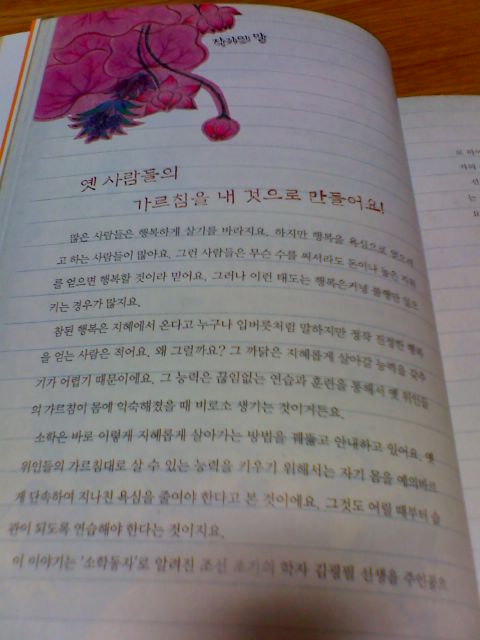 작가의 말
옛 사람들의
가르침을 내 것으로 만들어요!
많은 사람들은 행복하게 살기를 바라지요. 하지만 행복을 욕심으로 얻으려
고 하는 사람들이 많아요. 그런 사람들은 무슨 수를 써서라도 돈이나 높은 지위
를 얻으면 행복할 것이라 믿어요. 그러나 이런 태도는 행복은커녕 불행만 일으
키는 경우가 많지요.
참된 행복은 지혜에서 온다고 누구나 입버릇처럼 말하지만 정작 진정한 행복
을 얻는 사람은 적어요. 왜 그럴까요? 그 까닭은 지혜롭게 살아갈 능력을 갖추
기가 어렵기 때문이에요. 그 능력은 끊임없는 연습과 훈련을 통해서 옛 위인들
의 가르침이 몸에 익숙해졌을 때 비로소 생기는 것이거든요.
소학은 바로 이렇게 지혜롭게 살아가는 방법을 꿰뚫고 안내하고 있어요. 옛
위인들의 가르침대로 살 수 있는 능력을 키우기 위해서는 자기 몸을 예의바르
게 단속하여 지나친 욕심을 줄여야 한다고 본 것이에요. 그것도 어릴 때부터 습
관이 되도록 연습해야 한다는 것이지요.
이 이야기는 '소학동자'로 알려진 조선 초기의 학자 김굉필 선생을 주인공으